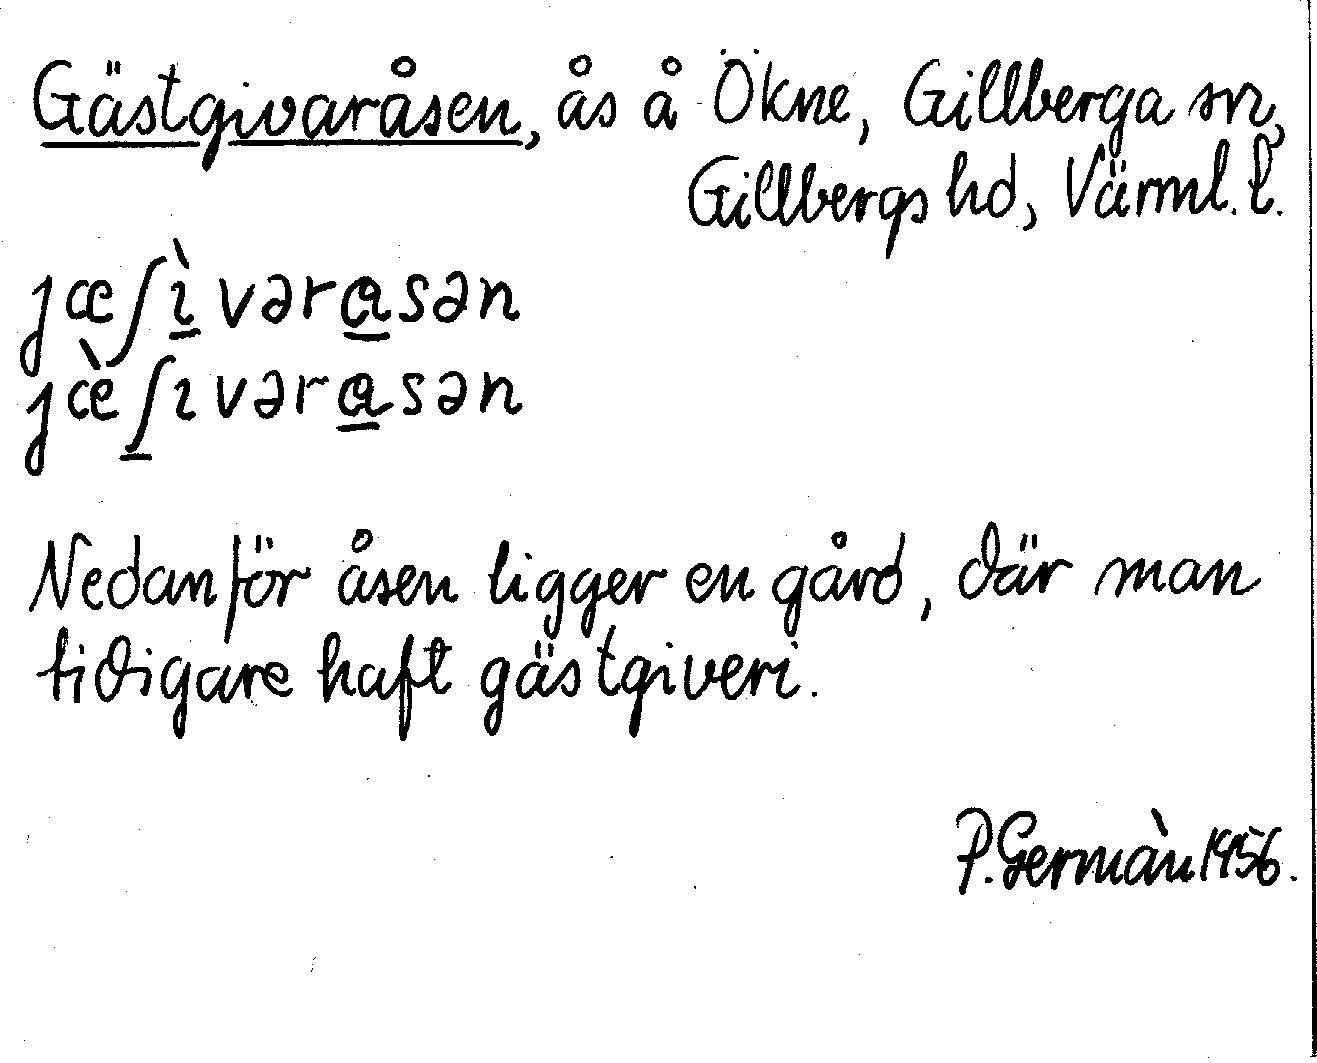 Gästgivaråsen, ås å Ökne, Gillberga sn,
Gillbergs hd, Värml. l.
jæʃı̲̀vəra̲sən
jæ̀ʃ̲ıvəra̲sən
Nedanför åsen ligger en gård, där man
tidigare haft gästgiveri.
P. Germàn 1956.